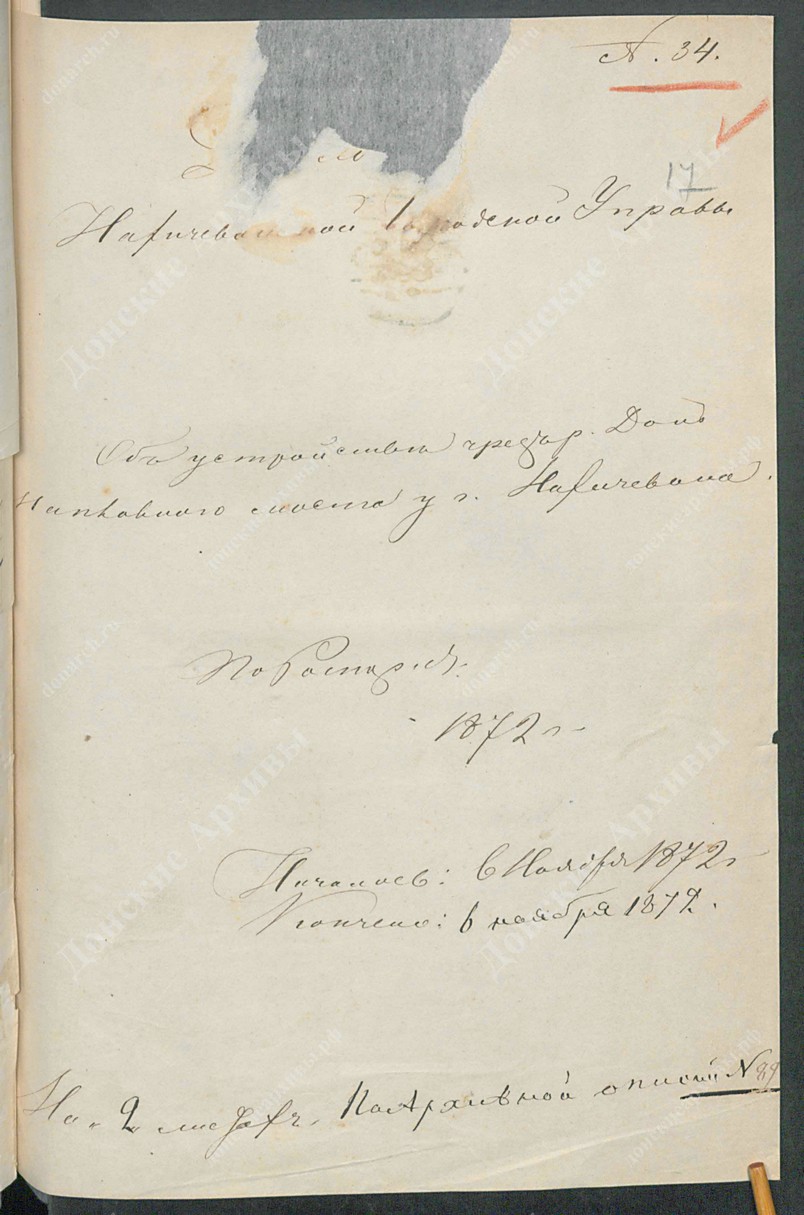 N. 34.
17
Дѣло
Нахичеванской Городской Управы
Объ устройствѣ чрезъ р. Донъ
наплавного моста у г. Нахичевана.
1872 г.
Началось: 6 Ноября 1872 г
Кончено: 6 ноября 1872.
На "2" листахъ. По Архивной описи N 89